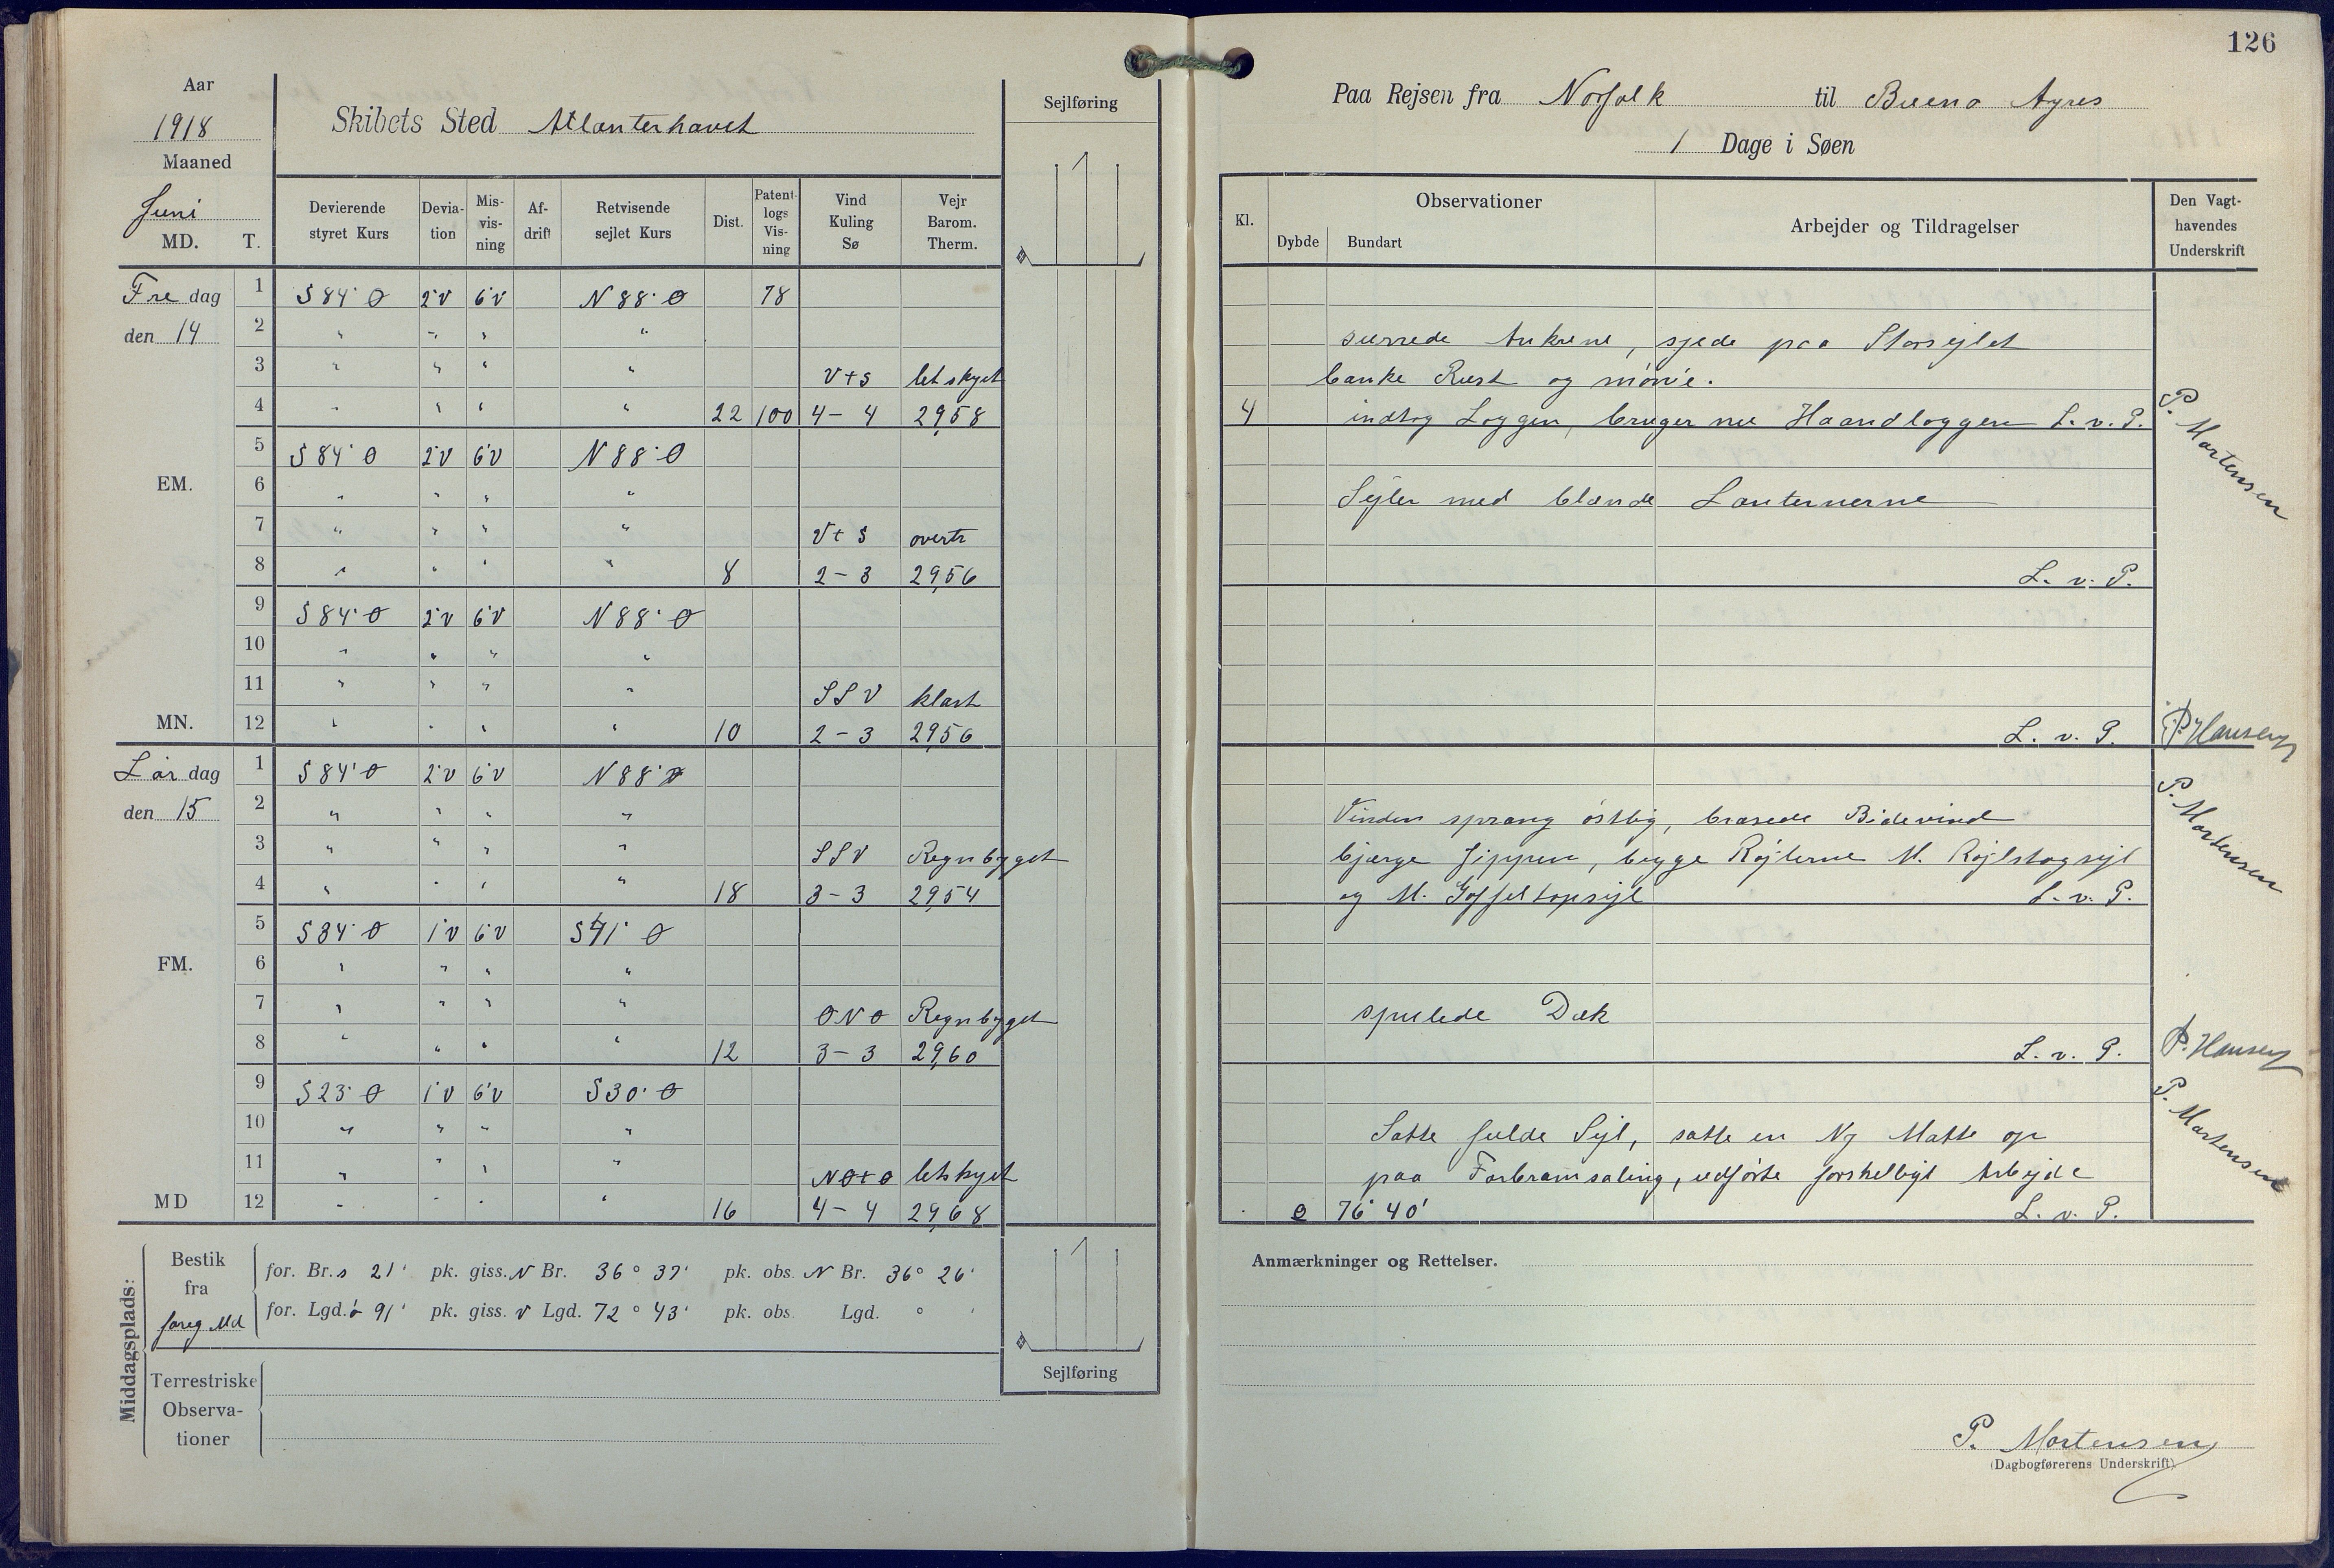 126
Aar
1918
Maaned
Juni
MD. T.
Skibets Sted Atlanterhavet
Sejlføring
Devierende styret Kurs | Devia-tion | Mis-vis-ning | Af-drift | Retvisende sejlet Kurs | Dist. | Patent-logs Vis-ning | Vind Kuling Sø | Vejr Barom. Therm.
Fredag 1 S 84° Ø 2°V 6°V N 88° Ø 78
den 14 2 " " " "
3 " " " " V t S let skyet
4 " " " " 22 100 4 - 4 29,58
5 S 84° Ø 2°V 6°V N 88° Ø
EM. 6 " " " "
7 " " " " V t S overtr
8 " " " " 8 2 - 3 29,56
9 S 84° Ø 2°V 6°V N 88° Ø
10 " " " "
11 " " " " SSV klart
MN. 12 " " " " 10 2 - 3 29,56
Lørdag 1 S 84° Ø 2°V 6°V N 88° Ø
den 15 2 " " " "
3 " " " " SSV Regnbyget
4 " " " " 18 3 - 3 29,54
5 S 84° Ø 1°V 6°V Ø
FM. 6 " " " "
7 " " " " ONO Regnbyget
8 " " " " 12 3 - 3 29,60
9 S 23° Ø 1°V 6°V S 30° Ø
10 " " " "
11 " " " " NØtØ letskyet
MD 12 " " " " 16 4 - 4 29,68
Middagsplads:
Bestik fra foreg Md
for. Br. s 21' pk. giss. N Br. 36° 37' pk. obs. N Br. 36° 26'
for. Lgd. ø 91' pk. giss. V Lgd. 72° 43' pk. obs. Lgd. ° '
Terrestriske Observa-tioner
Sejlføring
Paa Rejsen fra Norfolk til Bueno Ayres
1 Dage i Søen
Kl. | Observationer | Dybde | Bundart | Arbejder og Tildragelser | Den Vagt-havendes Underskrift
surrede Ankrene, syede paa Storsejlet
banke Rust og mønie.
4 indtog Loggen, bruger nu Haandloggen L. v. P.
P. Mortensen
Sejler med blænde Lanternerne
L. v. P.
L. v. P. P. Hansen
Vinden sprang østlig, brasede Bidevind
bjærge Jippen, begge Røjlerne M. Røjlstagsejl
og M. Gaffeltopsejl L. v. P.
P. Mortensen
spulede Dæk
L. v. P. P. Hansen
Satte fulde Sejl, satte en Ny Matte op
paa Forbramsaling, udførte forskelligt Arbejde
76° 40' L. v. P.
P. Mortensen
Anmærkninger og Rettelser.
P. Mortensen
(Dagbogførerens Underskrift)